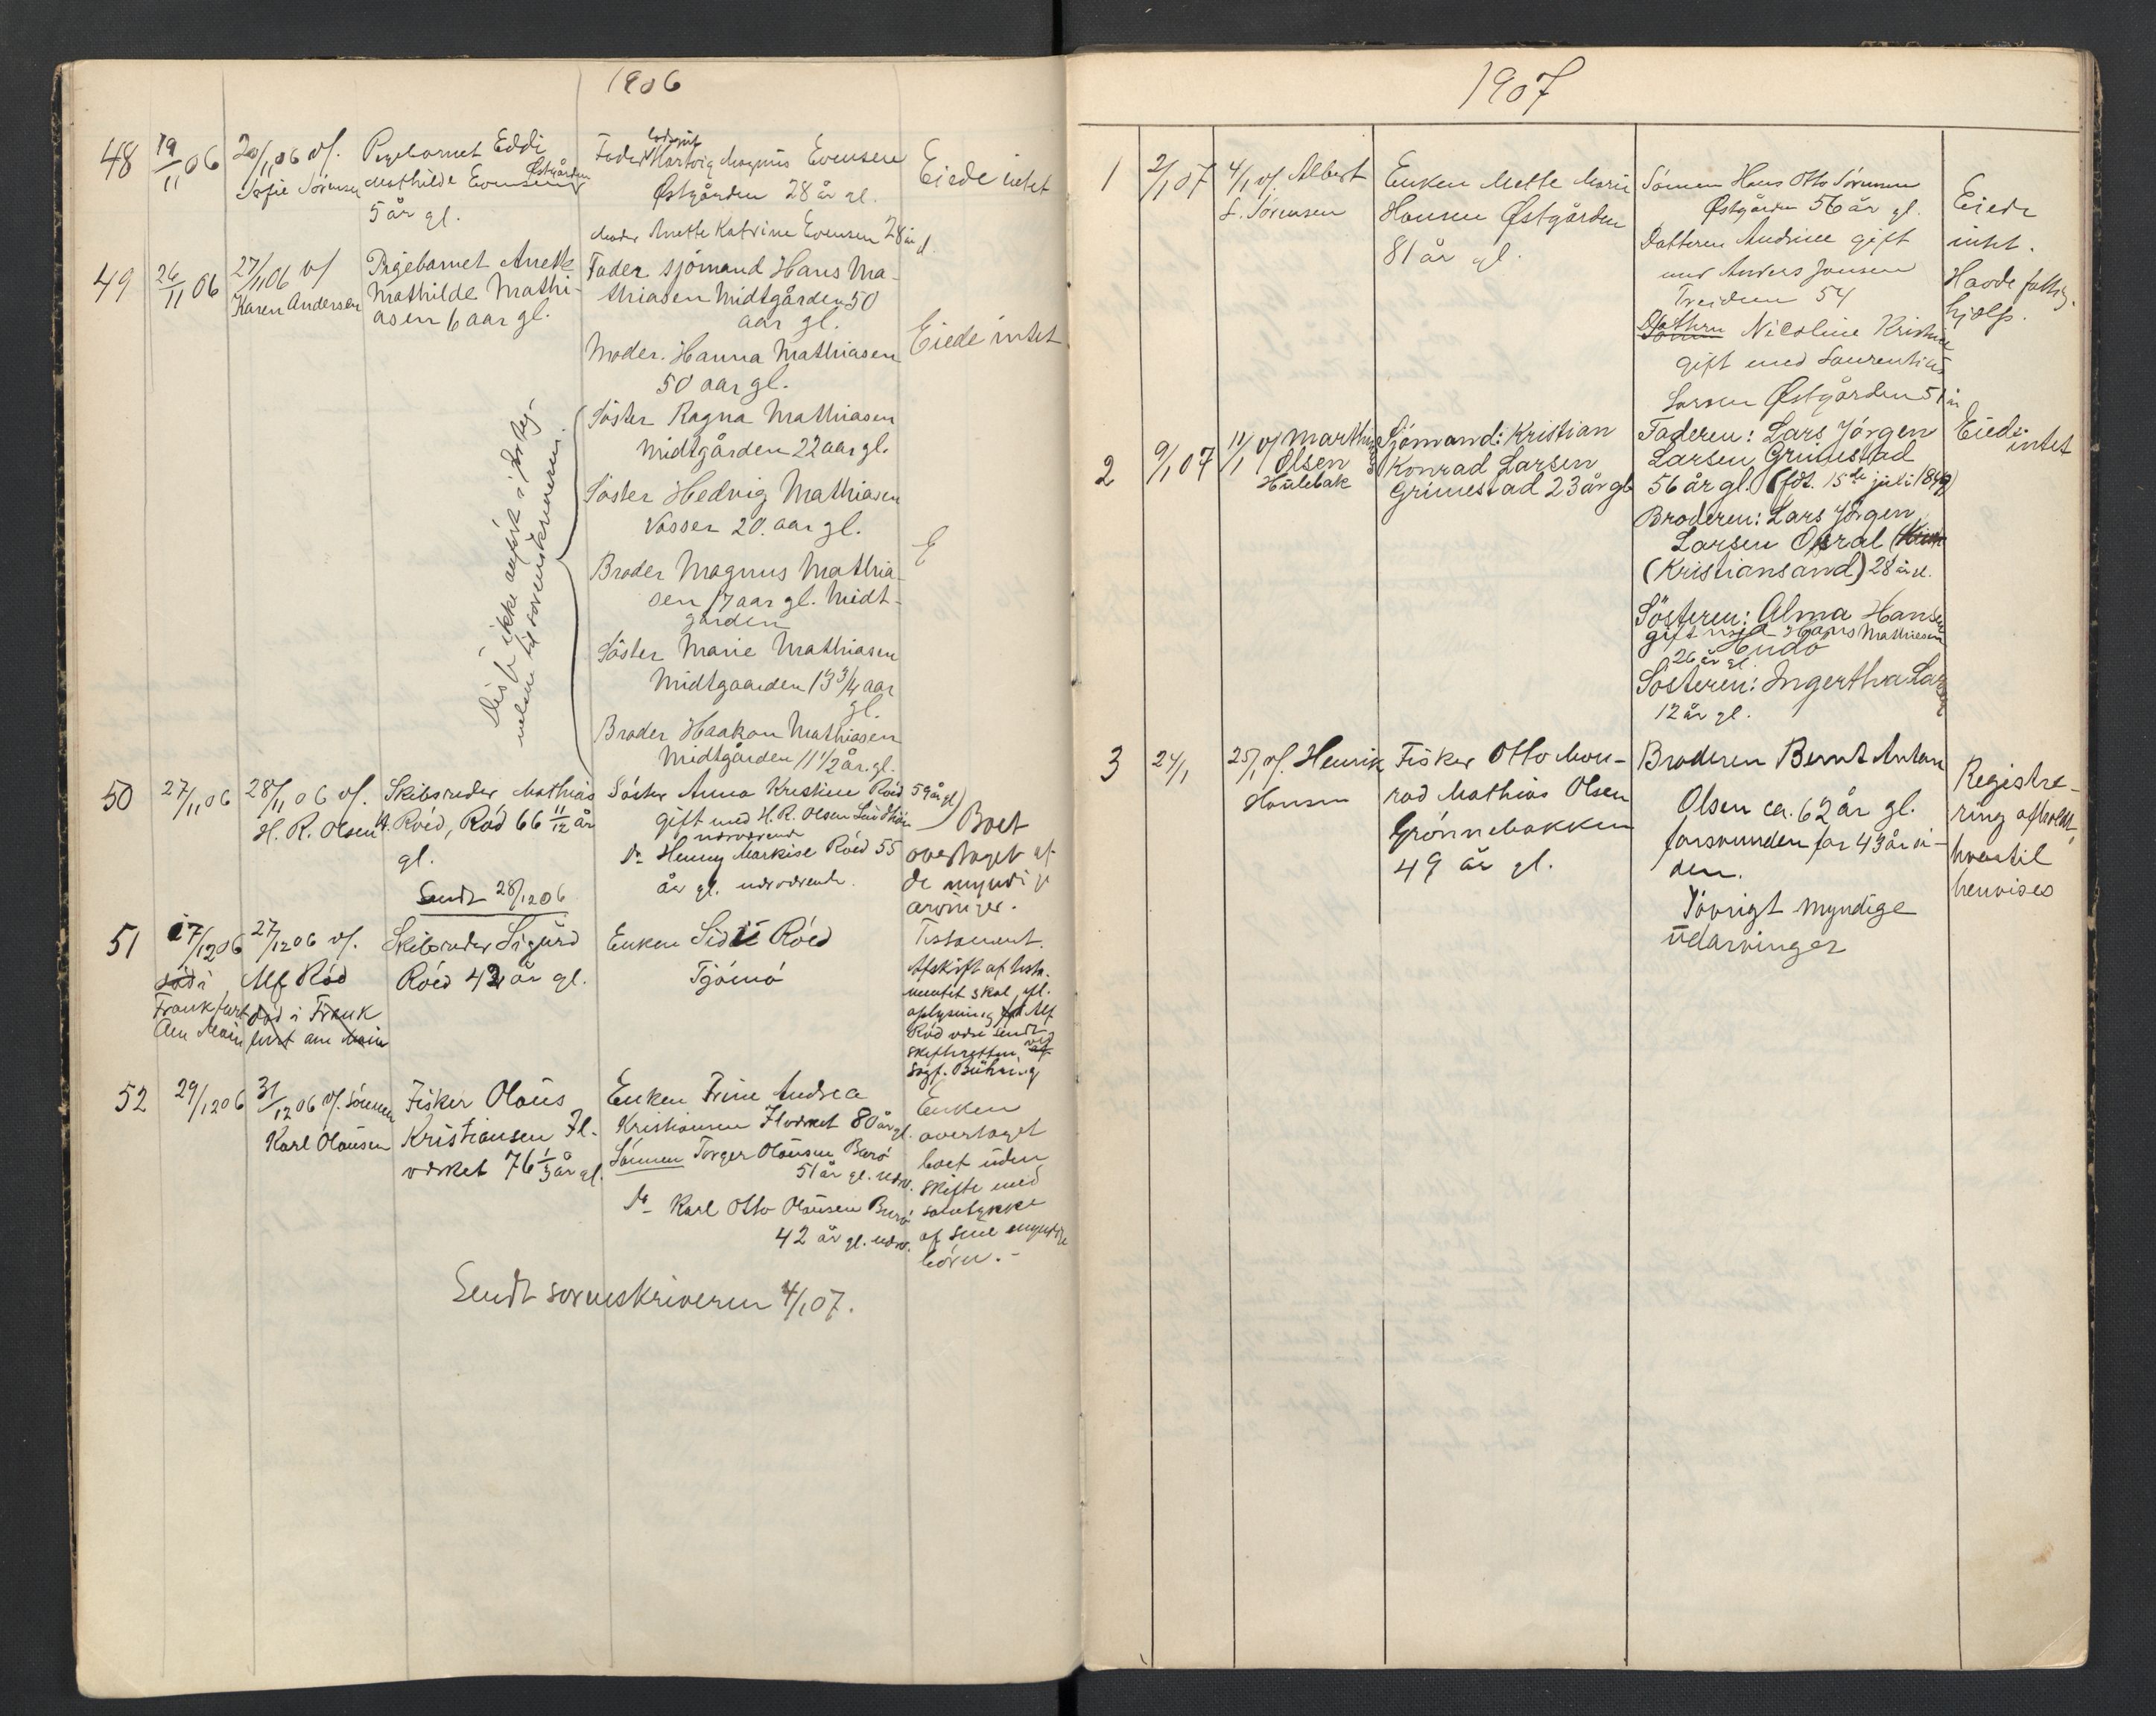 1906
48
19/11 06
20/11 06 v/.
Sofie Sörensen
Pigebarnet Eddi
Mathilde Evensen
Østgården
5 år gl.
Fader Hartvig Magnus Evensen
Østgården 28 år gl.
Moder Anette Katrine Evensen 28 år
Eiede intet
49
26/11 06
27/11 06 v/
Karen Andersen
Pigebarnet Anette
Mathilde Mathi-
asen 6 aar gl.
Fader sjömand Hans Ma-
thiasen Midtgården 50
aar gl.
Moder. Hanna Mathiasen
50 aar gl.
Söster Ragna Mathiasen
Midtgården 22 aar gl.
Söster Hedvig Mathiasen
Vasser 20. aar gl.
Broder Magnus Mathia-
sen 17 aar gl. Midt-
gården
Söster Marie Mathiasen
Midtgaarden 13 3/4 aar
gl.
Broder Haakon Mathiasen
Midtgården 11 1/2 år. gl.
Eiede intet
E
ikke anført i forteg-
nelsen til sorenskriveren.
50
27/11 06
28/11 06 v/.
H. R. Olsen
Skibsreder Mathias
H. Röed, Röd 66 11/12 år
gl.
Sendt 28/12 06
Söster Anna Kristine Röed 59 år gl
gift med H. R. Olsen
nærværende
Do Henny Markise Röed 55
år gl. nærværende.
Boet
overtaget af
de myndige
arvinger.
51
17/12 06
död i
Frankfurt
Am Main
27/12 06 v/.
Alf Röd
död i Frank
furt am Main
Skibsreder Sigurd
Röed 42 år gl.
Enken Röed
Tjömö
Testament.
Afskrift af testa-
mentet skal, efl.
oplysning Alf
Röd være sendt
skifteretten ved
Sagf. Bühring
52
29/12 06
31/12 06 v/. Sönnen
Karl Olausen
Fisker Olaus
Kristiansen Fl-
værket 76 1/3 år gl.
Enken Trine Andrea
Kristiansen Flværket 80 år gl.
Sönnen Torger Olausen Burö
51 år gl. nærv.
Do Karl Otto Olausen Burö
42 år gl. nærv.
Enken
overtaget
boet uden
skifte med
samtykke
af sine myndige
börn. -
Sendt sorenskriveren 4/1 07.
1907
1
2/1 07
4/1 v/. Albert
L. Sörensen
Enken Mette Marie
Hansen Østgården
81 år gl.
Sönnen Hans Otto Sörensen
Østgården 56 år gl.
Datteren Andrine gift
med Anders Jansen
Treidene 54
Datteren Nicoline Kristine
gift med Laurentius
Larsen Østgården 51 år
Eiede
intet.
Havde fattig-
hjælp.
2
9/1 07
11/1 v/ Marthin
Olsen
Hulebak
Sjömand: Kristian
Konrad Larsen
Grimestad 23 år gl.
Faderen: Lars Jörgen
Larsen Grimestad
56 år gl. (födt. 15de juli 1849)
Broderen: Lars Jörgen
Larsen
(Kristiansand) 28 år gl.
Sösteren: Alma Hansen
gift med Hans Mathiesen
26 år gl.
Sösteren: Ingertha Larsen
12 år gl.
Eiede
intet
3
24/1
25/1 v/. Henrik
Hansen
Fisker Otto Kon-
rad Mathias Olsen
Grönnebakken
49 år gl.
Broderen Bernt Anton
Olsen ca. 62 år gl.
forsvunden for 43 år si-
den.
Iövrigt myndige
udarvinger
Registre-
ring afholdt,
hvortil
henvises